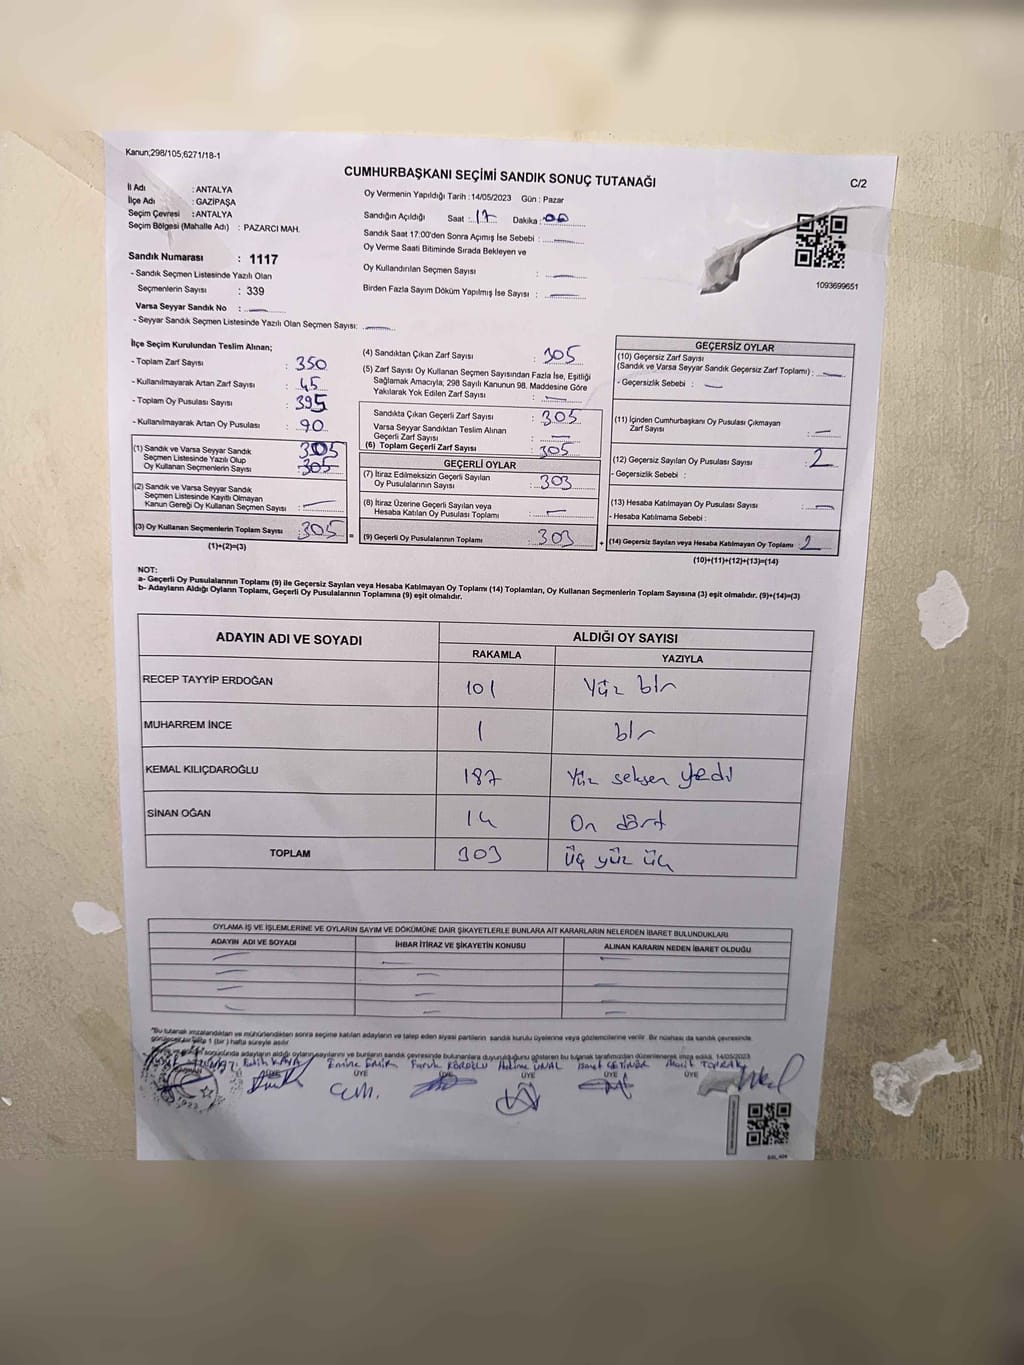 Kanun;298/105;6271/18-1
CUMHURBAŞKANI SEÇİMİ SANDIK SONUÇ TUTANAĞI
C/2
İl Adı : ANTALYA
İlçe Adı : GAZİPAŞA
Seçim Çevresi : ANTALYA
Seçim Bölgesi (Mahalle Adı) : PAZARCI MAH.
Oy Vermenin Yapıldığı Tarih : 14/05/2023 Gün : Pazar
Sandığın Açıldığı Saat : 17 Dakika : 00
Sandık Saat 17:00'den Sonra Açımış İse Sebebi : —
Oy Verme Saati Bitiminde Sırada Bekleyen ve
Oy Kullandırılan Seçmen Sayısı : —
Birden Fazla Sayım Döküm Yapılmış İse Sayısı : —
1093699651
Sandık Numarası : 1117
- Sandık Seçmen Listesinde Yazılı Olan
Seçmenlerin Sayısı : 339
Varsa Seyyar Sandık No : —
- Seyyar Sandık Seçmen Listesinde Yazılı Olan Seçmen Sayısı: —
İlçe Seçim Kurulundan Teslim Alınan;
- Toplam Zarf Sayısı : 350
- Kullanılmayarak Artan Zarf Sayısı : 45
- Toplam Oy Pusulası Sayısı : 395
- Kullanılmayarak Artan Oy Pusulası : 90
(1) Sandık ve Varsa Seyyar Sandık
Seçmen Listesinde Yazılı Olup
Oy Kullanan Seçmenlerin Sayısı : 305
305
(2) Sandık ve Varsa Seyyar Sandık
Seçmen Listesinde Kayıtlı Olmayan
Kanun Gereği Oy Kullanan Seçmen Sayısı : —
(3) Oy Kullanan Seçmenlerin Toplam Sayısı : 305
(1)+(2)=(3)
(4) Sandıktan Çıkan Zarf Sayısı : 305
(5) Zarf Sayısı Oy Kullanan Seçmen Sayısından Fazla İse, Eşitliği
Sağlamak Amacıyla; 298 Sayılı Kanunun 98. Maddesine Göre
Yakılarak Yok Edilen Zarf Sayısı : —
Sandıkta Çıkan Geçerli Zarf Sayısı : 305
Varsa Seyyar Sandıktan Teslim Alınan
Geçerli Zarf Sayısı : —
(6) Toplam Geçerli Zarf Sayısı : 305
GEÇERLİ OYLAR
(7) İtiraz Edilmeksizin Geçerli Sayılan
Oy Pusulalarının Sayısı : 303
(8) İtiraz Üzerine Geçerli Sayılan veya
Hesaba Katılan Oy Pusulası Toplamı : —
= (9) Geçerli Oy Pusulalarının Toplamı : 303
GEÇERSİZ OYLAR
(10) Geçersiz Zarf Sayısı
(Sandık ve Varsa Seyyar Sandık Geçersiz Zarf Toplamı) : —
- Geçersizlik Sebebi : —
(11) İçinden Cumhurbaşkanı Oy Pusulası Çıkmayan
Zarf Sayısı : —
(12) Geçersiz Sayılan Oy Pusulası Sayısı : 2
- Geçersizlik Sebebi :
(13) Hesaba Katılmayan Oy Pusulası Sayısı : —
- Hesaba Katılmama Sebebi :
+ (14) Geçersiz Sayılan veya Hesaba Katılmayan Oy Toplamı : 2
(10)+(11)+(12)+(13)=(14)
NOT:
a- Geçerli Oy Pusulalarının Toplamı (9) ile Geçersiz Sayılan veya Hesaba Katılmayan Oy Toplamı (14) Toplamları, Oy Kullanan Seçmenlerin Toplam Sayısına (3) eşit olmalıdır. (9)+(14)=(3)
b- Adayların Aldığı Oyların Toplamı, Geçerli Oy Pusulalarının Toplamına (9) eşit olmalıdır.
ADAYIN ADI VE SOYADI ALDIĞI OY SAYISI
RAKAMLA YAZIYLA
RECEP TAYYİP ERDOĞAN 101 Yüz bir
MUHARREM İNCE 1 bir
KEMAL KILIÇDAROĞLU 187 Yüz seksen yedi
SİNAN OĞAN 14 On dört
TOPLAM 303 Üç yüz üç
OYLAMA İŞ VE İŞLEMLERİNE VE OYLARIN SAYIM VE DÖKÜMÜNE DAİR ŞİKAYETLERLE BUNLARA AİT KARARLARIN NELERDEN İBARET BULUNDUKLARI
ADAYIN ADI VE SOYADI İHBAR İTİRAZ VE ŞİKAYETİN KONUSU ALINAN KARARIN NEDEN İBARET OLDUĞU
"Bu tutanak imzalandıktan ve mühürlendikten sonra seçime katılan adayların ve talep eden siyasi partilerin sandık kurulu üyelerine veya gözlemcilerine verilir. Bir nüshası da sandık çevresinde
görülecek bir yere 1 (bir) hafta süreyle asılır.
sonucunda adayların aldığı oyların sayılarını ve bunların sandık çevresinde bulunanlara duyurulduğunu gösteren bu tutanak tarafımızdan düzenlenerek imza edildi. 14/05/2023
Edik KAYA Emine EMİR Faruk KÖROĞLU Halime ÜNAL İsmet ÇETİNER TOPRAK
ÜYE ÜYE ÜYE ÜYE ÜYE ÜYE